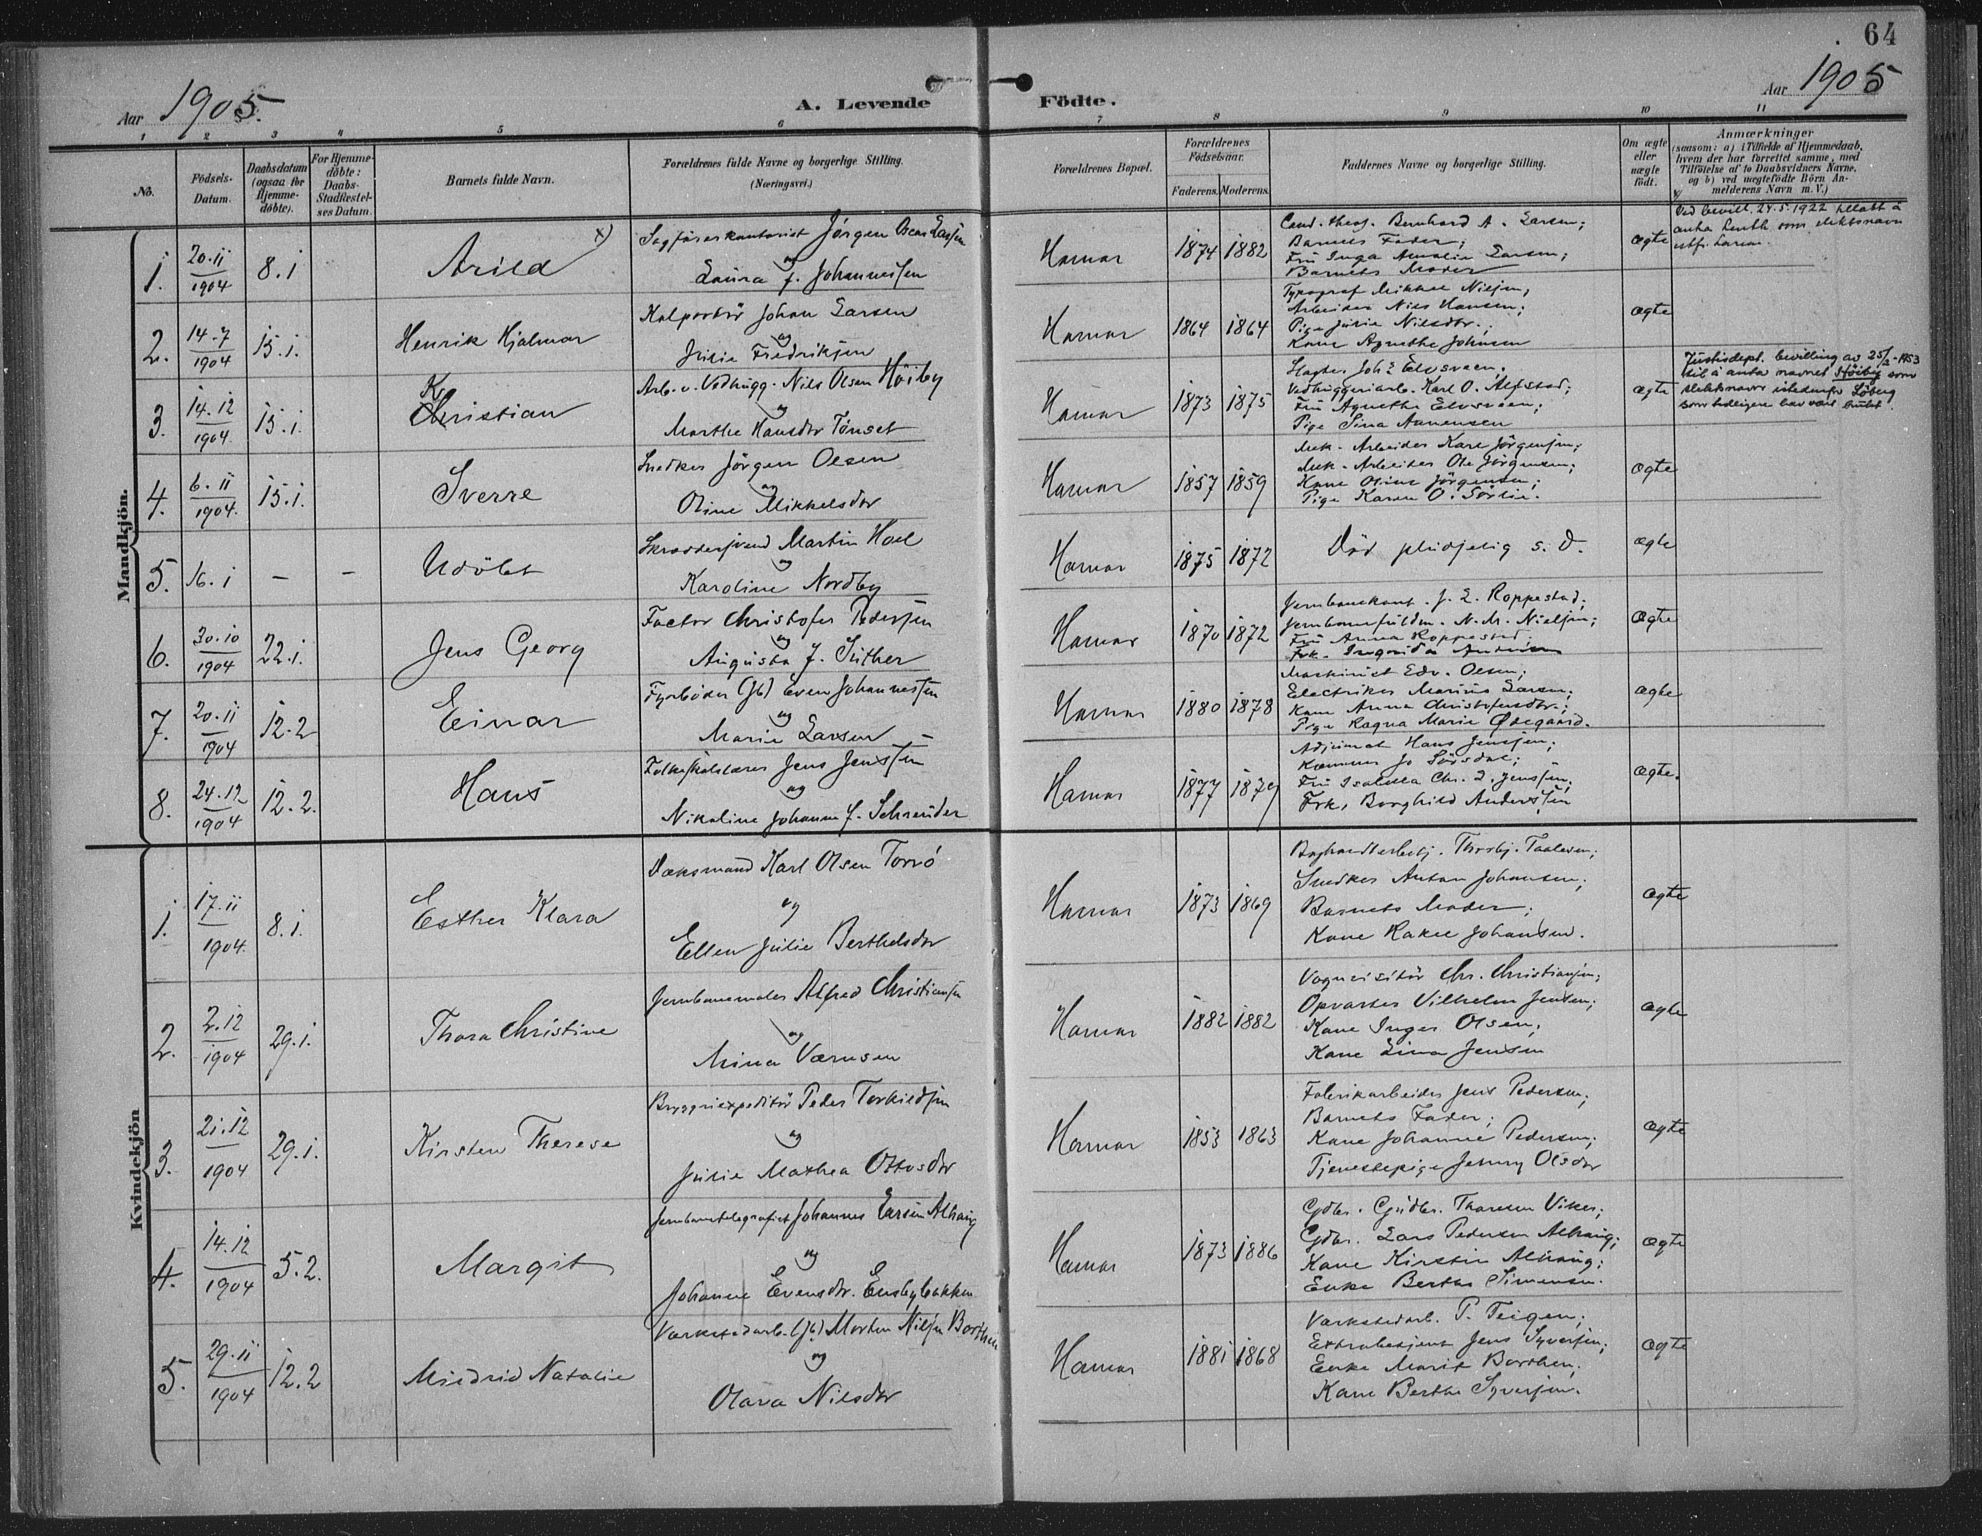 64
Aar 1905.
A. Levende Födte.
Aar 1905
1 2 3 4 5 6 7 8 9 10 11
No.
Födsels-Datum.
Daabsdatum (ogsaa for Hjemme-döbte).
For Hjemme-döbte: Daabs-Stadfæstel-ses Datum.
Barnets fulde Navn.
Forældrenes fulde Navne og borgerlige Stilling. (Næringsvei.)
Forældrenes Bopæl.
Forældrenes Födselsaar.
Faderens. Moderens.
Faddernes Navne og borgerlige Stilling.
Om ægte eller uægte födt.
Anmærkninger
(saasom: a) i Tilfælde af Hjemmedaab, hvem der har forrettet samme, med Tilföielse af to Daabsvidners Navne, og b) ved uægtefödte Börn An-melderens Navn m. V.)
Mandkjön.
1. 20.11 1904 8.1 Arild x)
Sagförerkontorist Jörgen Oscar Larsen
og
Laura J. Johannessen
Hamar 1874 1882
Cand. theol. Bernhard A. Larsen;
Barnets Fader;
Fru Inga Amalie Larsen;
Barnets Moder
ægte
x) Ved bevill. 24.5.1922 tillatt å
anta som slektsnavn
istf. Larsen.
2. 14.7 1904 15.1. Henrik Hjalmar
Kolportör Johan Larsen
og
Julie Fredriksen
Hamar 1864 1864
Typograf Mikkel Nilsen;
Arbeider Nils Hansen;
Pige Julie Nilsdtr.;
Kone Agnethe Johnsen
ægte
3. 14.12 1904. 15.1. Kristian
Arb. v. Vedhugg. Nils Olsen Höiby
og
Marthe Hansdtr Tönset
Hamar 1873 1875
Slagter Joh. Elvsveen;
Vedhuggeriarb. Karl O. Alfstad;
Fru Agnethe Elvsveen;
Pige Sina Aanensen
ægte
Justisdept. bevilling av 25/3-1953
til å anta navnet Höiby som
slektsnavn istedenfor Löberg
som tidligere har vært brukt.
4. 6.11 1904. 15.1. Sverre
Snedker Jörgen Olsen
og
Oline Mikkelsdtr
Hamar 1857 1859
Mek. Arbeider Karl Jörgensen;
Mek. Arbeider Ole Jörgensen;
Kone Oline Jörgensen;
Pige Karen O. Sörlie.
ægte
5. 16.1 - - Udöbt
Skræddersvend Martin Hoel
og
Karoline Nordby
Hamar 1875 1872
Död pludselig s. D.
ægte
6. 30.10 1904 22.1. Jens Georg
Factor Christofer Pedersen
og
Augusta J. Suther
Hamar 1870 1872
Jernbanekont. J. L. Roppestad;
Jernbanefuldm. N. M. Nielsen;
Fru Anna Roppestad;
Frk. Ingrida Andersen
ægte
7. 20.11 1904 12.2 Einar
Fyrböder (Jb) Even Johannessen
og
Marie Larsen
Hamar 1880 1878
Maskinist Edv. Olsen;
Electriker Marius Larsen;
Kone Anna Christofersdtr.;
Pige Ragna Marie Ødegaard.
ægte
8. 24.12 1904 12.2. Hans
Folkeskolelærer Jens Jenssen
og
Nikoline Johanne J. Schrøder
Hamar 1877 1879
Adjunct Hans Jenssen;
Kæmner Jo Sörsdal;
Fru Isabella Chr. D. Jenssen;
Frk. Borghild Anderssen
ægte.
Kvindekjön
1. 17.11 1904. 8.1. Esther Klara
Vægmand Karl Olsen Torsö
og
Ellen Julie Berthelsdtr
Hamar 1873 1869
Boghandlerbetj. Thorbj. Taalesen;
Snedker Anton Johansen;
Barnets Moder;
Kone Rakel Johansen.
ægte
2. 2.12 1904 29.1. Thora Christine
Jernbanemaler Alfred Christiansen
og
Mina Værnsen
Hamar 1882 1882
Vognvisitör Chr. Christiansen;
Opvarter Vilhelm Jensen;
Kone Inger Olsen;
Kone Lina Jensen
ægte
3. 21.12 1904 29.1. Kirsten Therese
Bryggeriexpeditör Peder Torkildsen
og
Julie Mathea Ottosdtr
Hamar 1853 1863
Fabrikarbeider Jens Pedersen;
Barnets Fader;
Kone Johanne Pedersen;
Tjenestepige Jenny Olsdtr
ægte
4. 14.12 1904 5.2. Margit
Jernbanetelegrafist Johannes Larsen Alhaug
og
Johanne Evensdtr. Ensbybakken
Hamar 1873 1886
Gdbr. Gudbr. Thoresen Viker;
Gdbr. Lars Pedersen Alhaug;
Kone Kirstin Alhaug;
Enke Berthe Simensen.
ægte
5. 29.11 1904 12.2 Mildrid Natalie
Værkstedarb. (Jb) Morten Nilsen Borthen
og
Olava Nilsdtr
Hamar 1881 1868
Værkstedarb. P. Teigen;
Extrabetjent Jens Syversen;
Enke Marit Borthen;
Kone Berthe Syversen.
ægte